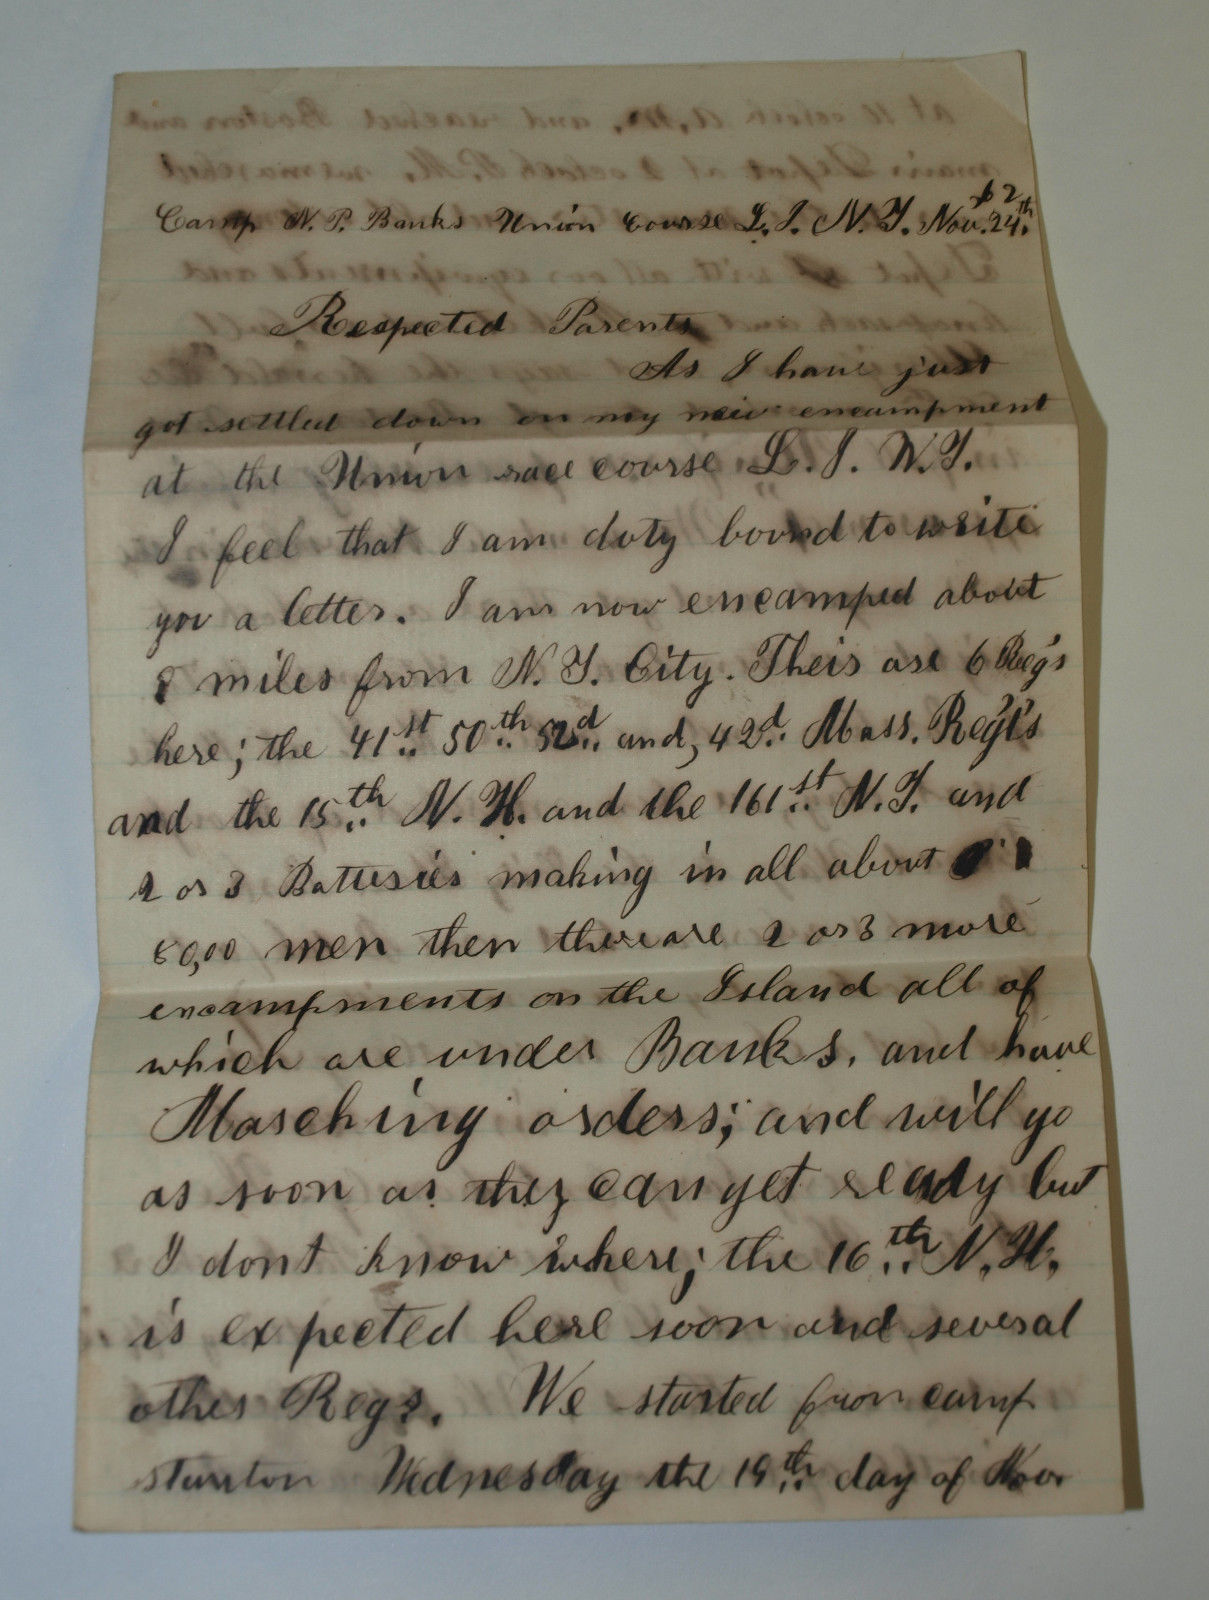 Camp N. P. Banks Union Course L. I. N. Y. Nov. 24th
Respected Parents
As I have just
got settled down on my new encampment
at the Union race course L. I. N. Y.
I feel that I am duty bound to write
you a letter. I am now encamped about
8 miles from N. Y. City. Theis are 6 Reg's
here; the 41st 50th 52d and, 42d Mass. Reg't's
and the 15th N. H. and the 161st N. Y. and
2 or 3 Batteries making in all about
80,00 men then there are 2 or 3 more
encampments on the Island all of
which are under Banks, and have
Marching orders; and will go
as soon as they can get ready but
I dont know where; the 16th N. H.
is expected here soon and several
other Regs. We started from camp
stanton Wednesday the 19th day of Nov.